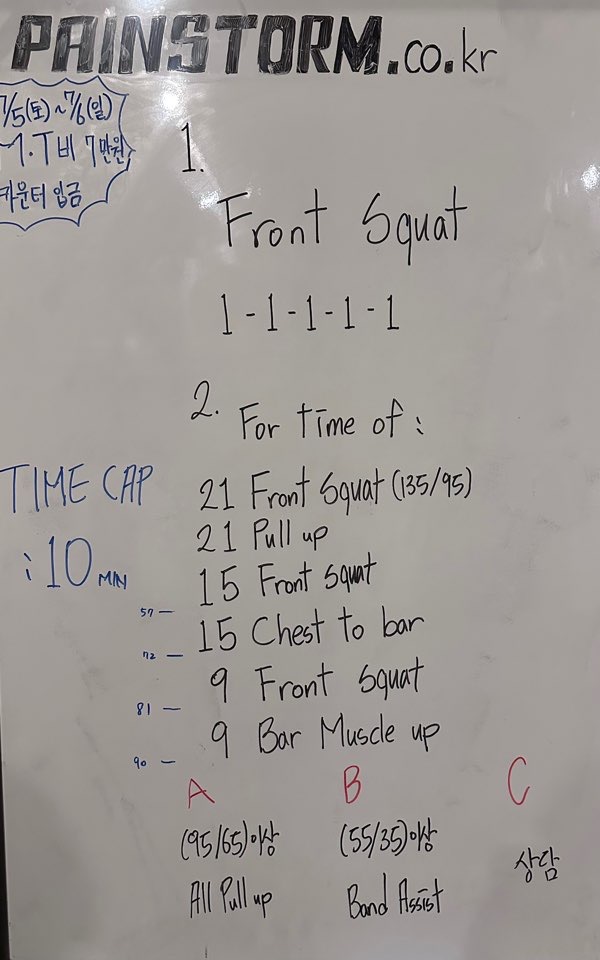 PAINSTORM.co.kr
7/5(토)~7/6(일)
M.T비 7만원
카운터 입금
1.
Front Squat
1-1-1-1-1
2. For time of :
TIME CAP
: 10 MIN
21 Front Squat (135/95)
21 Pull up
15 Front Squat
57 -
15 Chest to bar
72 -
9 Front Squat
81 -
9 Bar Muscle up
90 -
A B C
(95/65)이상 (55/35)이상 상담
All Pull up Band Assist